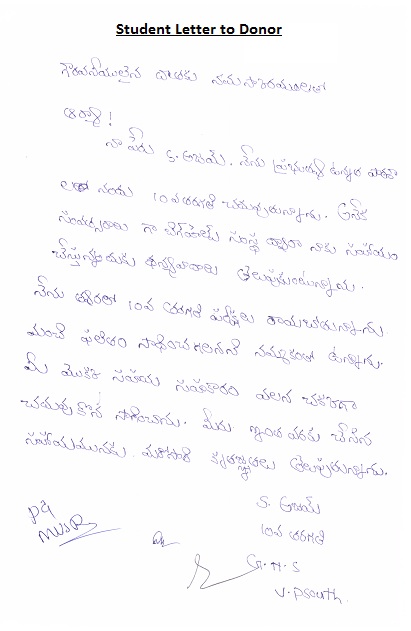 Student Letter to Donor
గౌరవనీయులైన దాతకు నమస్కారములతో
ఆర్యా!
నా పేరు S. అజయ్. నేను ప్రభుత్వ ఉన్నత పాఠశా
లలో నందు 10వ తరగతి చదువుచున్నాను. అనేక
సంవత్సరాలు గా సంస్థ ద్వారా నాకు సహాయం
చేస్తున్నందుకు ధన్యవాదాలు తెలుపుకుంటున్నాను.
నేను త్వరలో 10వ తరగతి పరీక్షలు రాయబోతున్నాను
మంచి ఫలితం సాధించగలనని నమ్మకంతో ఉన్నాను.
మీ యొక్క సహాయ సహకారం వలన చక్కగా
చదువుకొన సాగించాను. మీరు ఇంత వరకు చేసిన
సహాయమునకు మరొకసారి కృతజ్ఞతలు తెలుపుచున్నాను.
S. అజయ్
10వ తరగతి
G.H.S
V.P South.